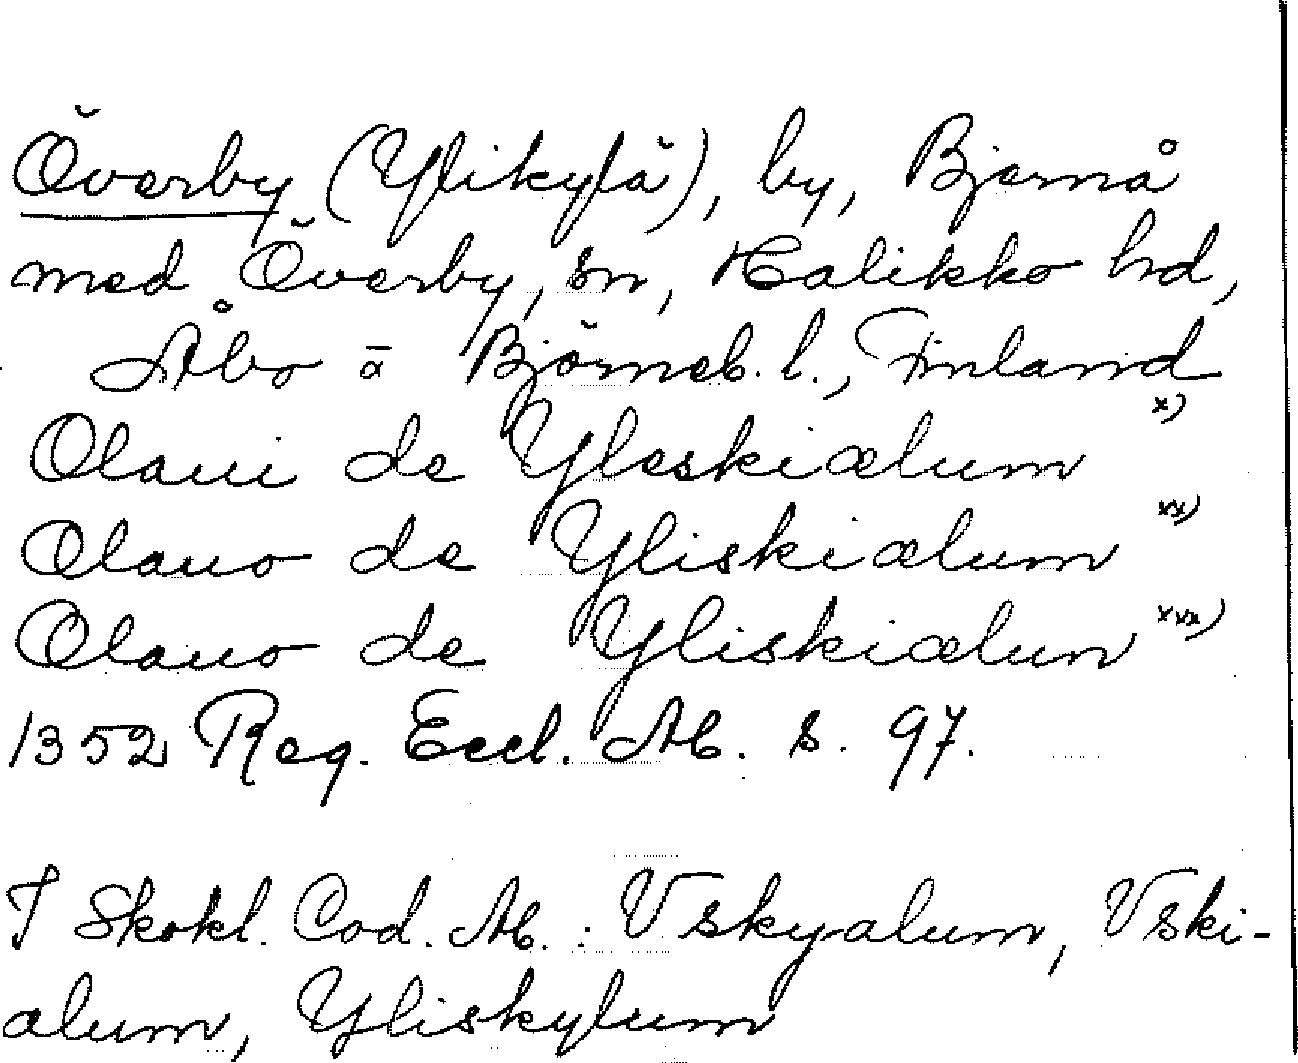 Överby (Ylikylä), by, Bjernå
med Överby, sn, Halikko hd,
Åbo ā Björneb. l., Finland
Olaui de Yleskiælum x)
Olauo de Yliskiælum xx)
Olauo de Yliskiælum xxx)
1352 Reg. Eccl. Ab. s. 97.
I Skokl. Cod. Ab. : Vskyalum, Vski-
alum, Yliskylum